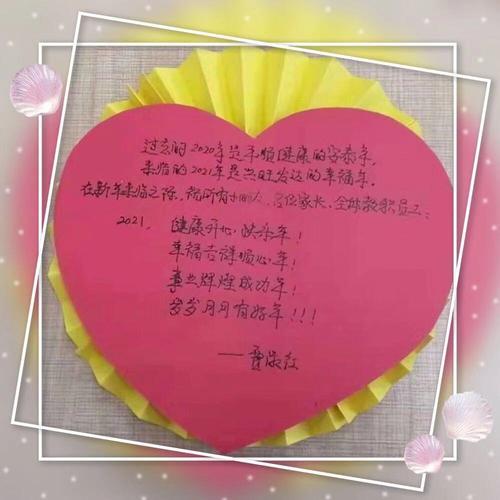 过去的2020年是平顺健康的安泰年，
来临的2021年是兴旺发达的幸福年。
在新年来临之际，祝所有小朋友、各位家长、全体教职员工：
2021，健康开心快乐年！
幸福吉祥顺心年！
事业辉煌成功年！
岁岁月月有好年！！！
——